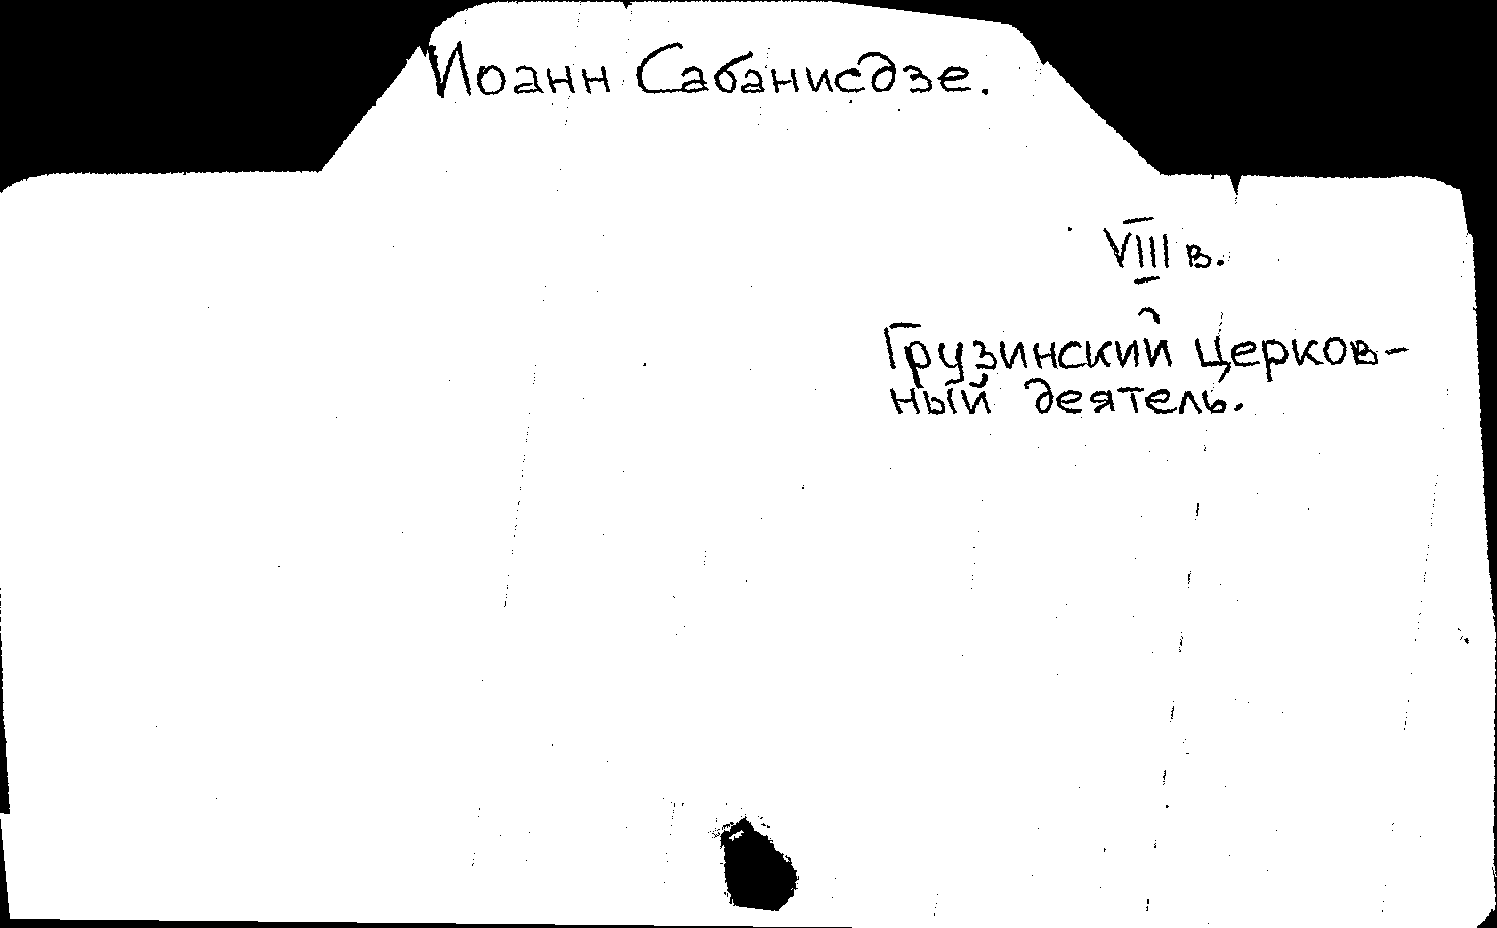 Иоанн Сабанисдзе.
VIII в.
Грузинский церков-
ный деятель.